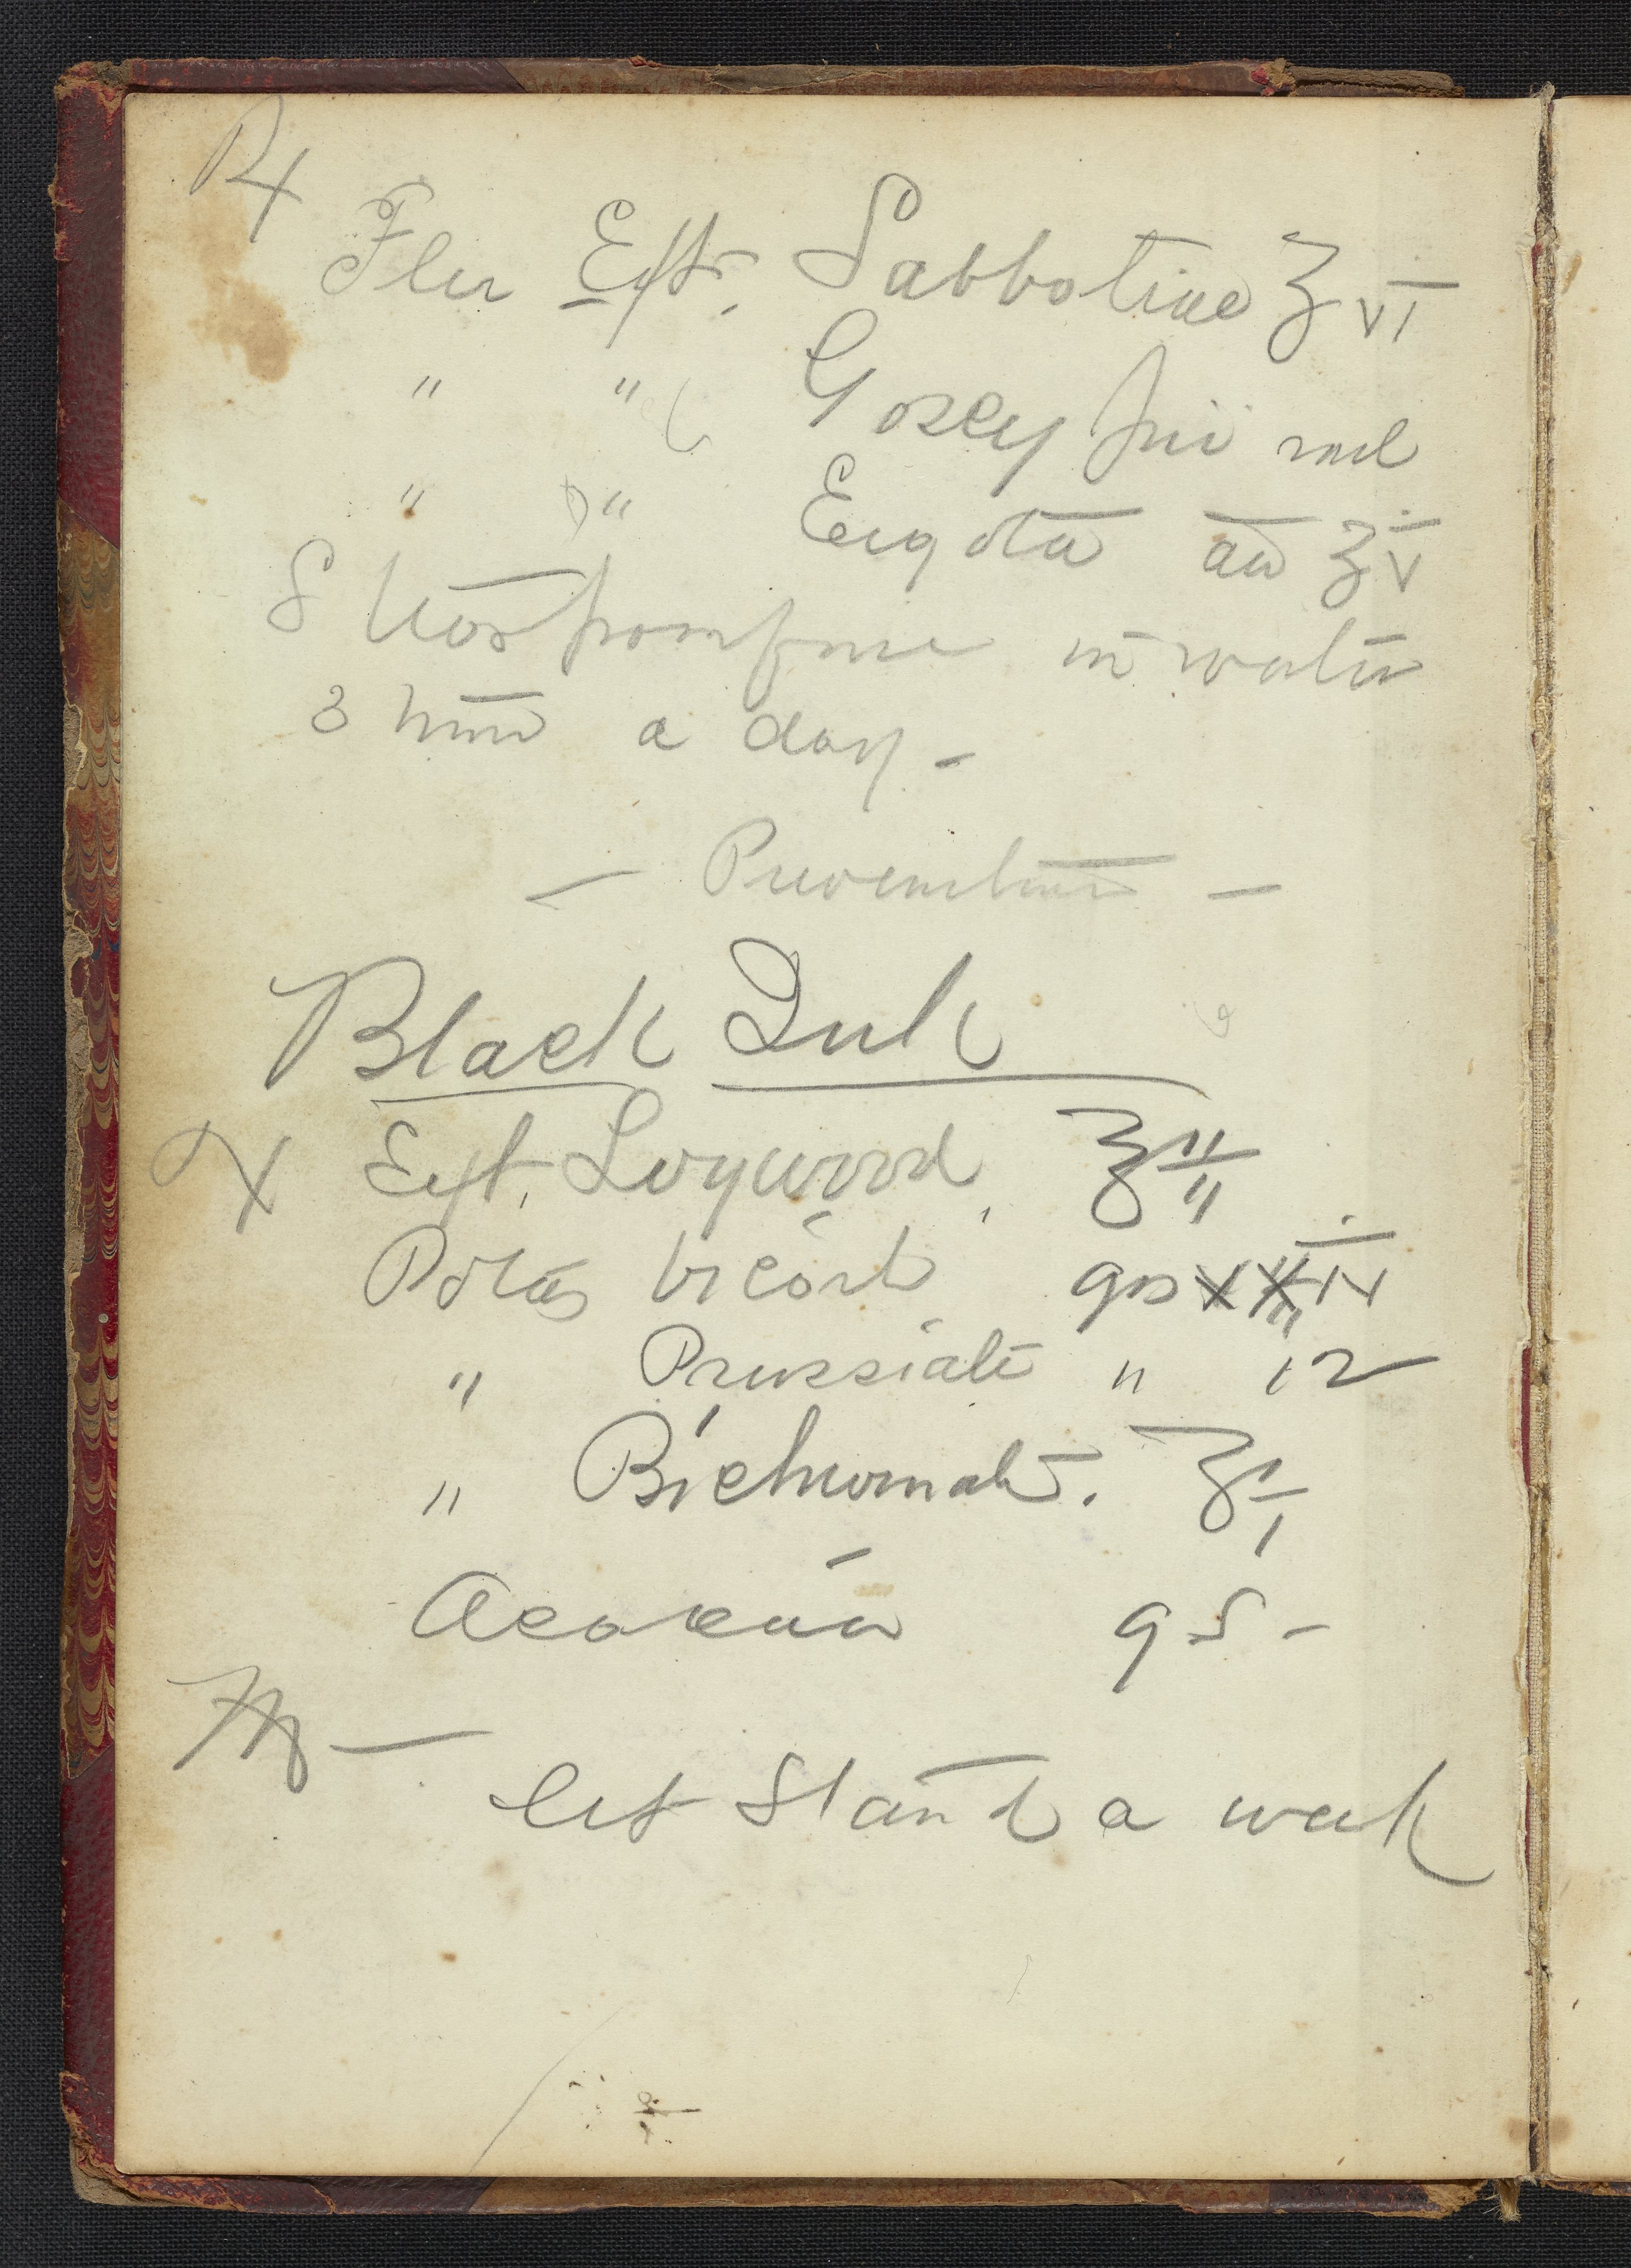 Rx
Flu Ext. Sabbatiae ʒ vi
" " Gossypii rad
" " Ergota aa ʒ v
S teaspoonful in water
3 times a day -
- Prevention -
Black Ink
Rx Ext. Logwood. ℥ ii
Potas bicarb grs xxiv
" Prussiate " 12
" Bichromate. ʒ i
Acacia qs -
M -
let stand a week